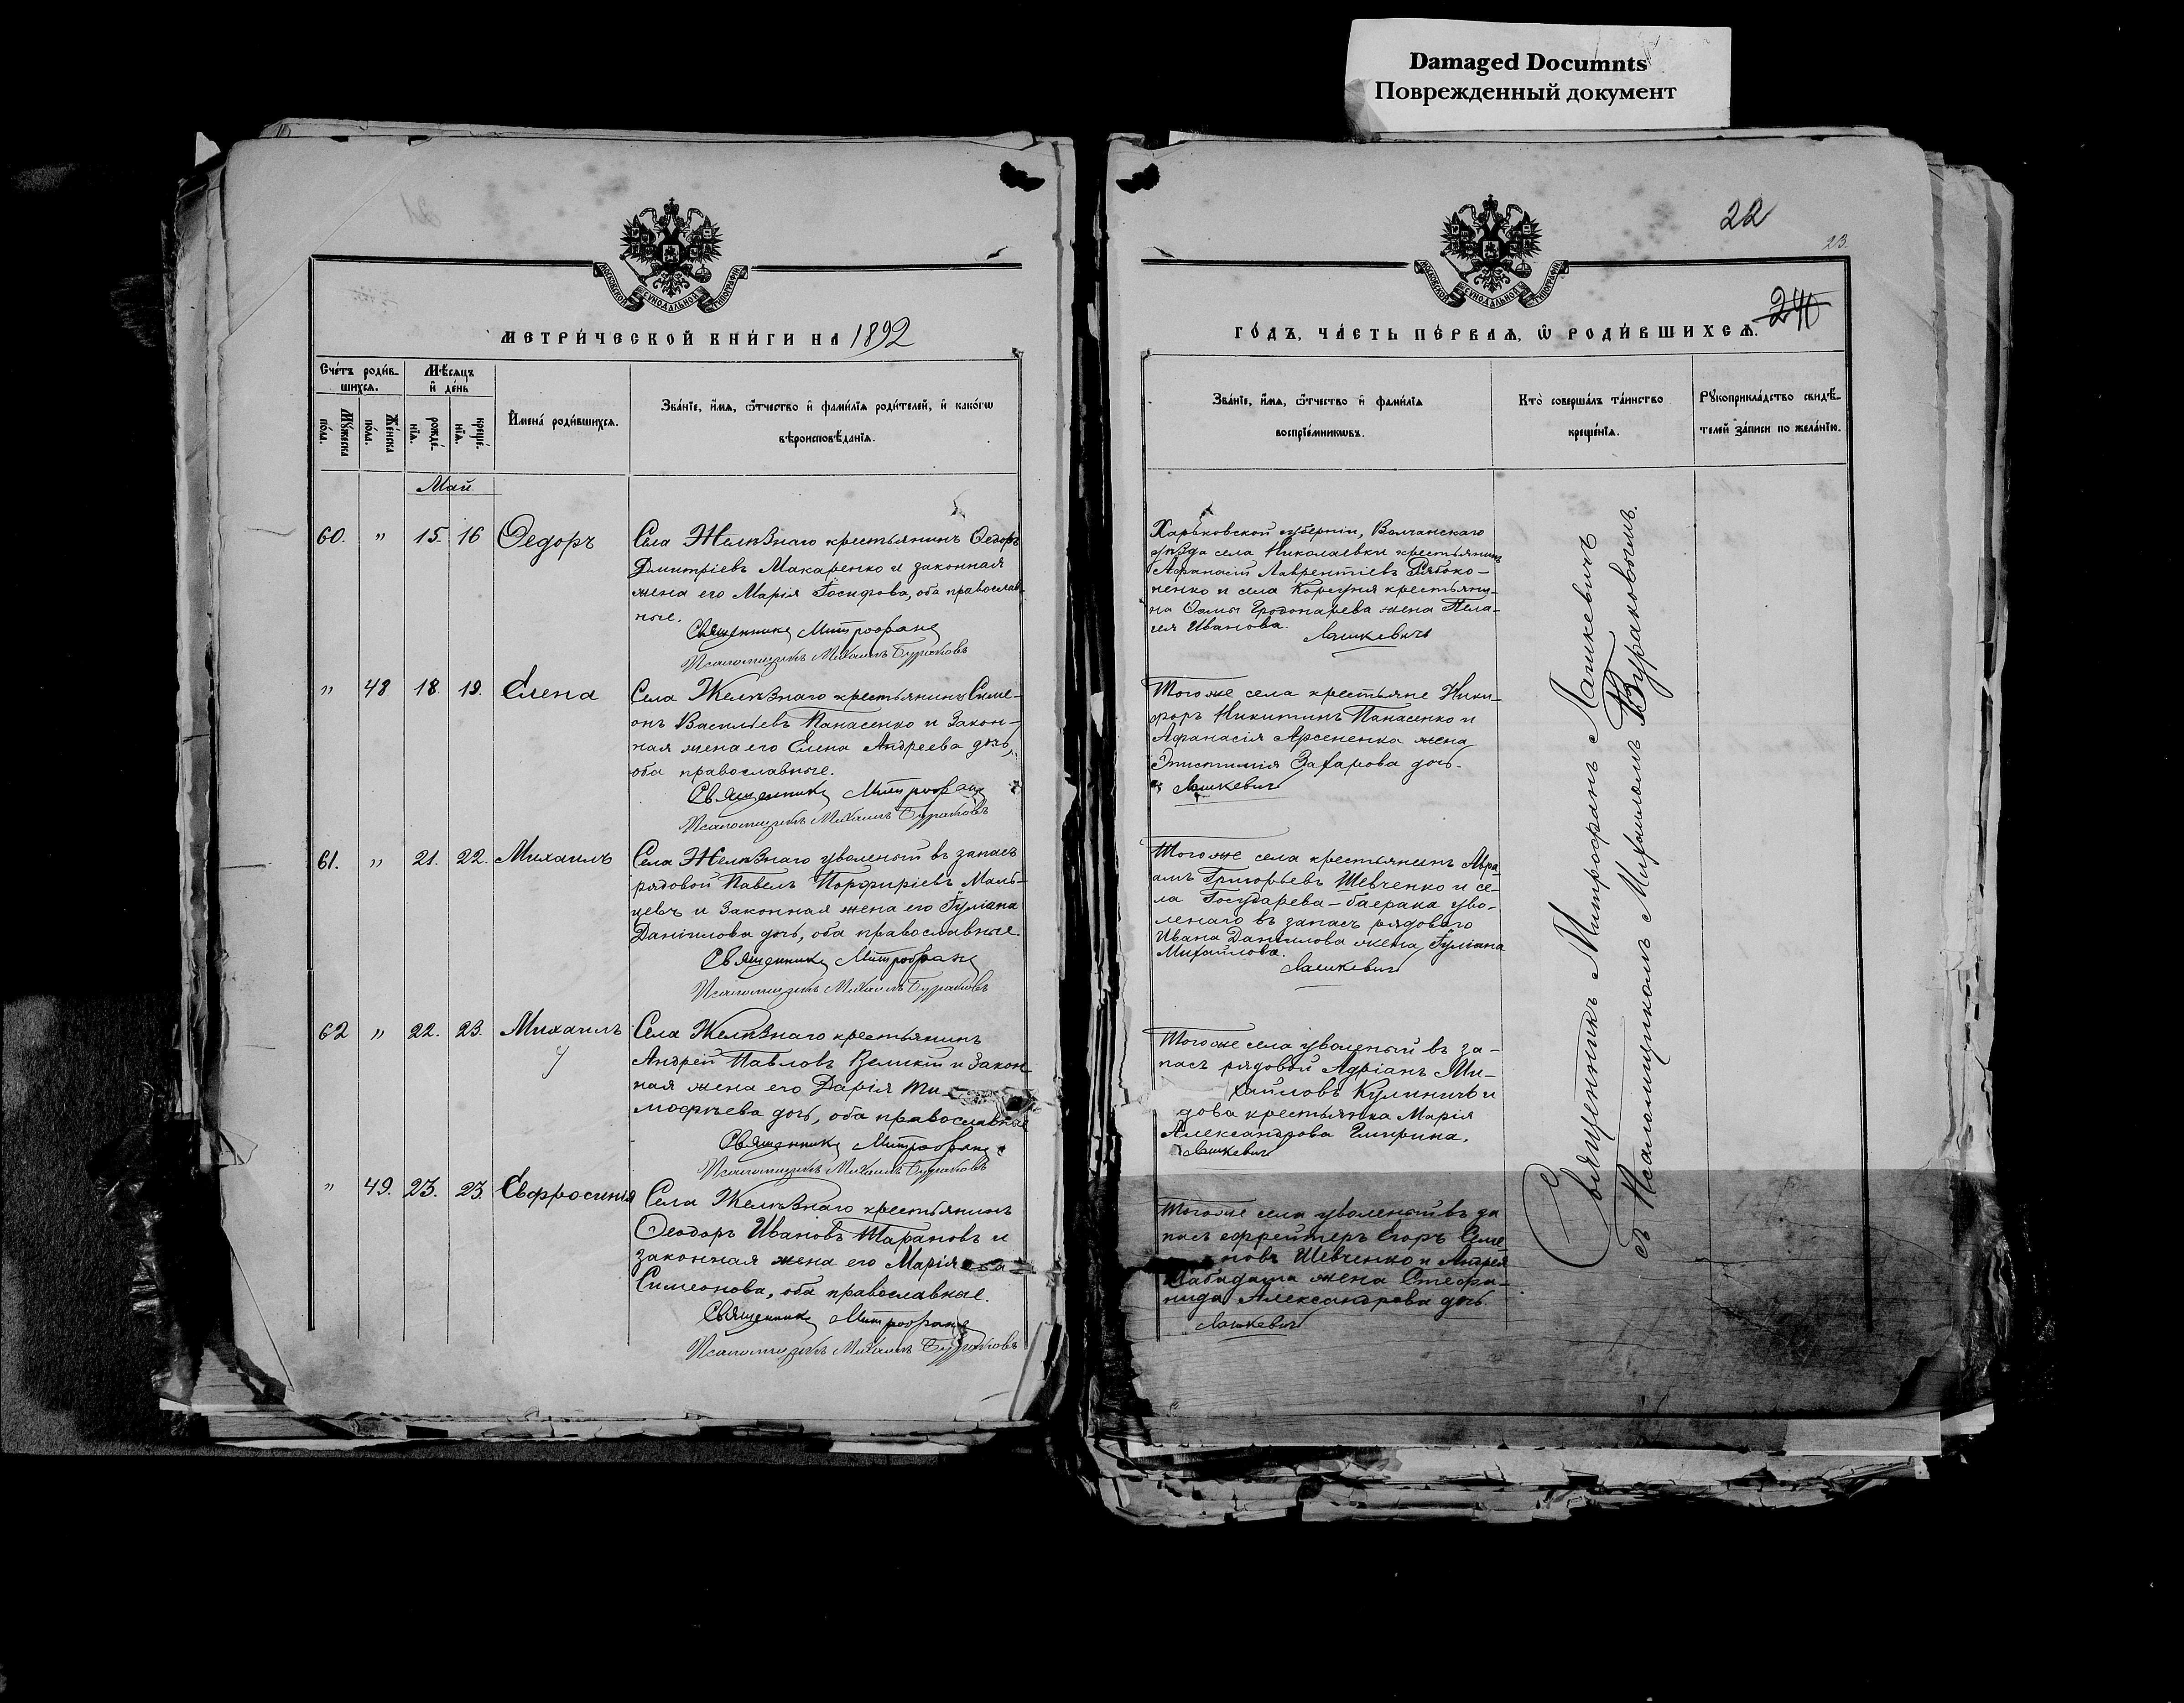 Damaged Documnts
Поврежденный документ
МОСКОВСКОЙ СУНОДАЛЬНОЙ ТИПОГРАФІИ
МЕТРИЧЕСКОЙ КНИГИ НА 1892
Счетъ родив-
шихся.
Мѣсяцъ
и день
Мужеска
пола.
Женска
пола.
рожде-
нія.
креще-
нія.
Имена родившихся.
Званіе, имя, отчество и фамилія родителей, и какогѡ
вѣроисповѣданія.
Май
60. " 15. 16 Ѳедоръ
Села Желѣзнаго крестьянинъ Ѳедоръ
Дмитріевъ Макаренко и законная
жена его Марія Іосифова, оба православ-
ные.
Священникъ Митрофанъ
Псаломщикъ Михаилъ Бураковъ
" 48 18. 19. Елена
Села Желѣзнаго крестьянинъ Симе-
онъ Васильевъ Панасенко и закон-
ная жена его Елена Андреева дочь,
оба православные.
Священникъ Митрофанъ
Псаломщикъ Михаилъ Бураковъ
61. " 21. 22. Михаилъ
Села Желѣзнаго уволеный въ запасъ
рядовой Павелъ Порфиріевъ Маль-
цевъ и законная жена его Іуліана
Даніилова дочь, оба православные.
Священникъ Митрофанъ
Псаломщикъ Михаилъ Бураковъ
62 " 22. 23. Михаилъ
Села Желѣзнаго крестьянинъ
Андрей Павловъ Великій и закон-
ная жена его Дарія Ти-
мофѣева дочь, оба православные
Священникъ Митрофанъ
Псаломщикъ Михаилъ Бураковъ
" 49. 23. 23. Евфросинія
Села Желѣзнаго крестьянинъ
Ѳеодоръ Ивановъ Тарановъ и
законная жена его Марія
Симеонова, оба православные.
Священникъ Митрофанъ
Псаломщикъ Михаилъ Бураковъ
22
23.
240
МОСКОВСКОЙ СУНОДАЛЬНОЙ ТИПОГРАФІИ
ГОДЪ, ЧАСТЬ ПЕРВАЯ, Ѿ РОДИВШИХСЯ.
Званіе, имя, отчество и фамилія
воспріемникѡвъ.
Кто совершалъ таинство
крещенія.
Рукоприкладство свидѣ-
телей записи по желанію.
Харьковской губерніи, Волчанскаго
уѣзда села Николаевки крестьянинъ
Афанасій Лаврентіевъ Рябоко-
ненко и села Корсуня крестьяни-
на Ѳомы жена Пела-
гея Иванова.
Лашкевичъ
Того же села крестьяне Ники-
форъ Никитинъ Панасенко и
Афанасія Арсененка жена
Епистимія Захарова дочь.
Лашкевичъ
Того же села крестьянинъ Авра-
амъ Григорьевъ Шевченко и се-
ла Государева-баерака уво-
ленаго въ запасъ рядового
Ивана Данилова жена Іуліана
Михайлова.
Лашкевичъ
Того же села уволеный въ за-
пасъ рядовой Адріанъ Ми-
хайловъ Кулиничъ и
дова крестьянка Марія
Александрова
Лашкевичъ
Того же села уволеный въ за
пасъ ефрейтеръ Егоръ Семе-
новъ Шевченко и Андрея
жена Стефа-
нида Александрова дочь.
Лашкевичъ
Священникъ Митрофанъ Лашкевичъ
съ Псаломщикомъ Михаиломъ Бураковымъ.